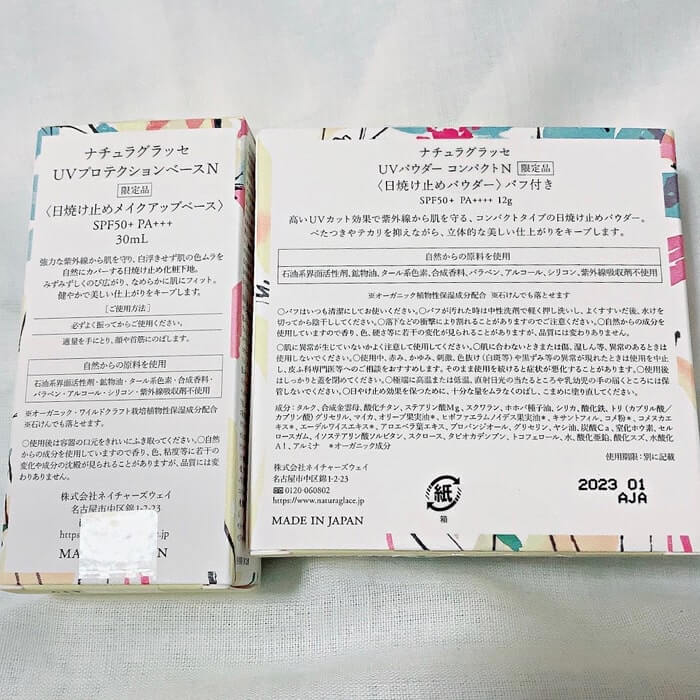 ナチュラグラッセ
UVプロテクションベースN
限定品
〈日焼け止めメイクアップベース〉
SPF50+ PA+++
30mL
強力な紫外線から肌を守り、白浮きせず肌の色ムラを
自然にカバーする日焼け止め化粧下地。
みずみずしくのび広がり、なめらかに肌にフィット。
健やかで美しい仕上がりをキープします。
[ご使用方法]
必ずよく振ってからご使用ください。
適量を手にとり、顔や首筋にのばします。
自然からの原料を使用
石油系界面活性剤・鉱物油・タール系色素・合成香料・
パラベン・アルコール・シリコン・紫外線吸収剤不使用
※オーガニック・ワイルドクラフト栽培植物性保湿成分配合
※石けんでも落とせます
○使用後は容器の口元をきれいにふき取ってください。○自然
からの成分を使用していますので香り、色、粘度等に若干の
変化や成分の沈殿が見られることがありますが、品質には変
わりありません。
株式会社ネイチャーズウェイ
名古屋市中区錦1-2-23
MADE IN
ナチュラグラッセ
UVパウダー コンパクトN 限定品
〈日焼け止めパウダー〉パフ付き
SPF50+ PA++++ 12g
高いUVカット効果で紫外線から肌を守る、コンパクトタイプの日焼け止めパウダー。
べたつきやテカリを抑えながら、立体的な美しい仕上がりをキープします。
自然からの原料を使用
石油系界面活性剤、鉱物油、タール系色素、合成香料、パラベン、アルコール、シリコン、紫外線吸収剤不使用
※オーガニック植物性保湿成分配合 ※石けんでも落とせます
○パフはいつも清潔にしてお使いください。○パフが汚れた時は中性洗剤で軽く押し洗いし、よくすすいだ後、水けを
切ってから陰干ししてください。○落下などの衝撃により割れることがありますのでご注意ください。○自然からの成分を
使用していますので香り、色、硬さ等に若干の変化が見られることがありますが、品質には変わりありません。
○肌に異常が生じていないかよく注意して使用してください。○肌に合わないときまたは傷、湿しん等、異常のあるときは
使用しないでください。○使用中、赤み、かゆみ、刺激、色抜け(白斑等)や黒ずみ等の異常が現れたときは使用を中止
し、皮ふ科専門医等へのご相談をおすすめします。そのまま使用を続けると症状が悪化することがあります。○使用後
はしっかりと蓋を閉めてください。○極端に高温または低温、直射日光の当たるところや乳幼児の手の届くところには保
管しないでください。○日やけ止め効果を保つために、十分な量をムラなくのばし、こまめに塗り直してください。
成分:タルク、合成金雲母、酸化チタン、ステアリン酸Mg、スクワラン、ホホバ種子油、シリカ、酸化鉄、トリ(カプリル酸/
カプリン酸)グリセリル、マイカ、オリーブ果実油※、ヒポファエラムノイデス果実油※、キサントフィル、コメ粉※、コメヌカエ
キス※、エーデルワイスエキス※、アロエベラ葉エキス、プロパンジオール、グリセリン、ヤシ油、炭酸Ca、窒化ホウ素、セル
ロースガム、イソステアリン酸ソルビタン、スクロース、タピオカデンプン、トコフェロール、水、酸化亜鉛、酸化スズ、水酸化
Al、アルミナ ※オーガニック成分
使用期限:別に記載
株式会社ネイチャーズウェイ
名古屋市中区錦1-2-23
0120-060802
https://www.naturaglace.jp
MADE IN JAPAN
紙
箱
2023 01
AJA